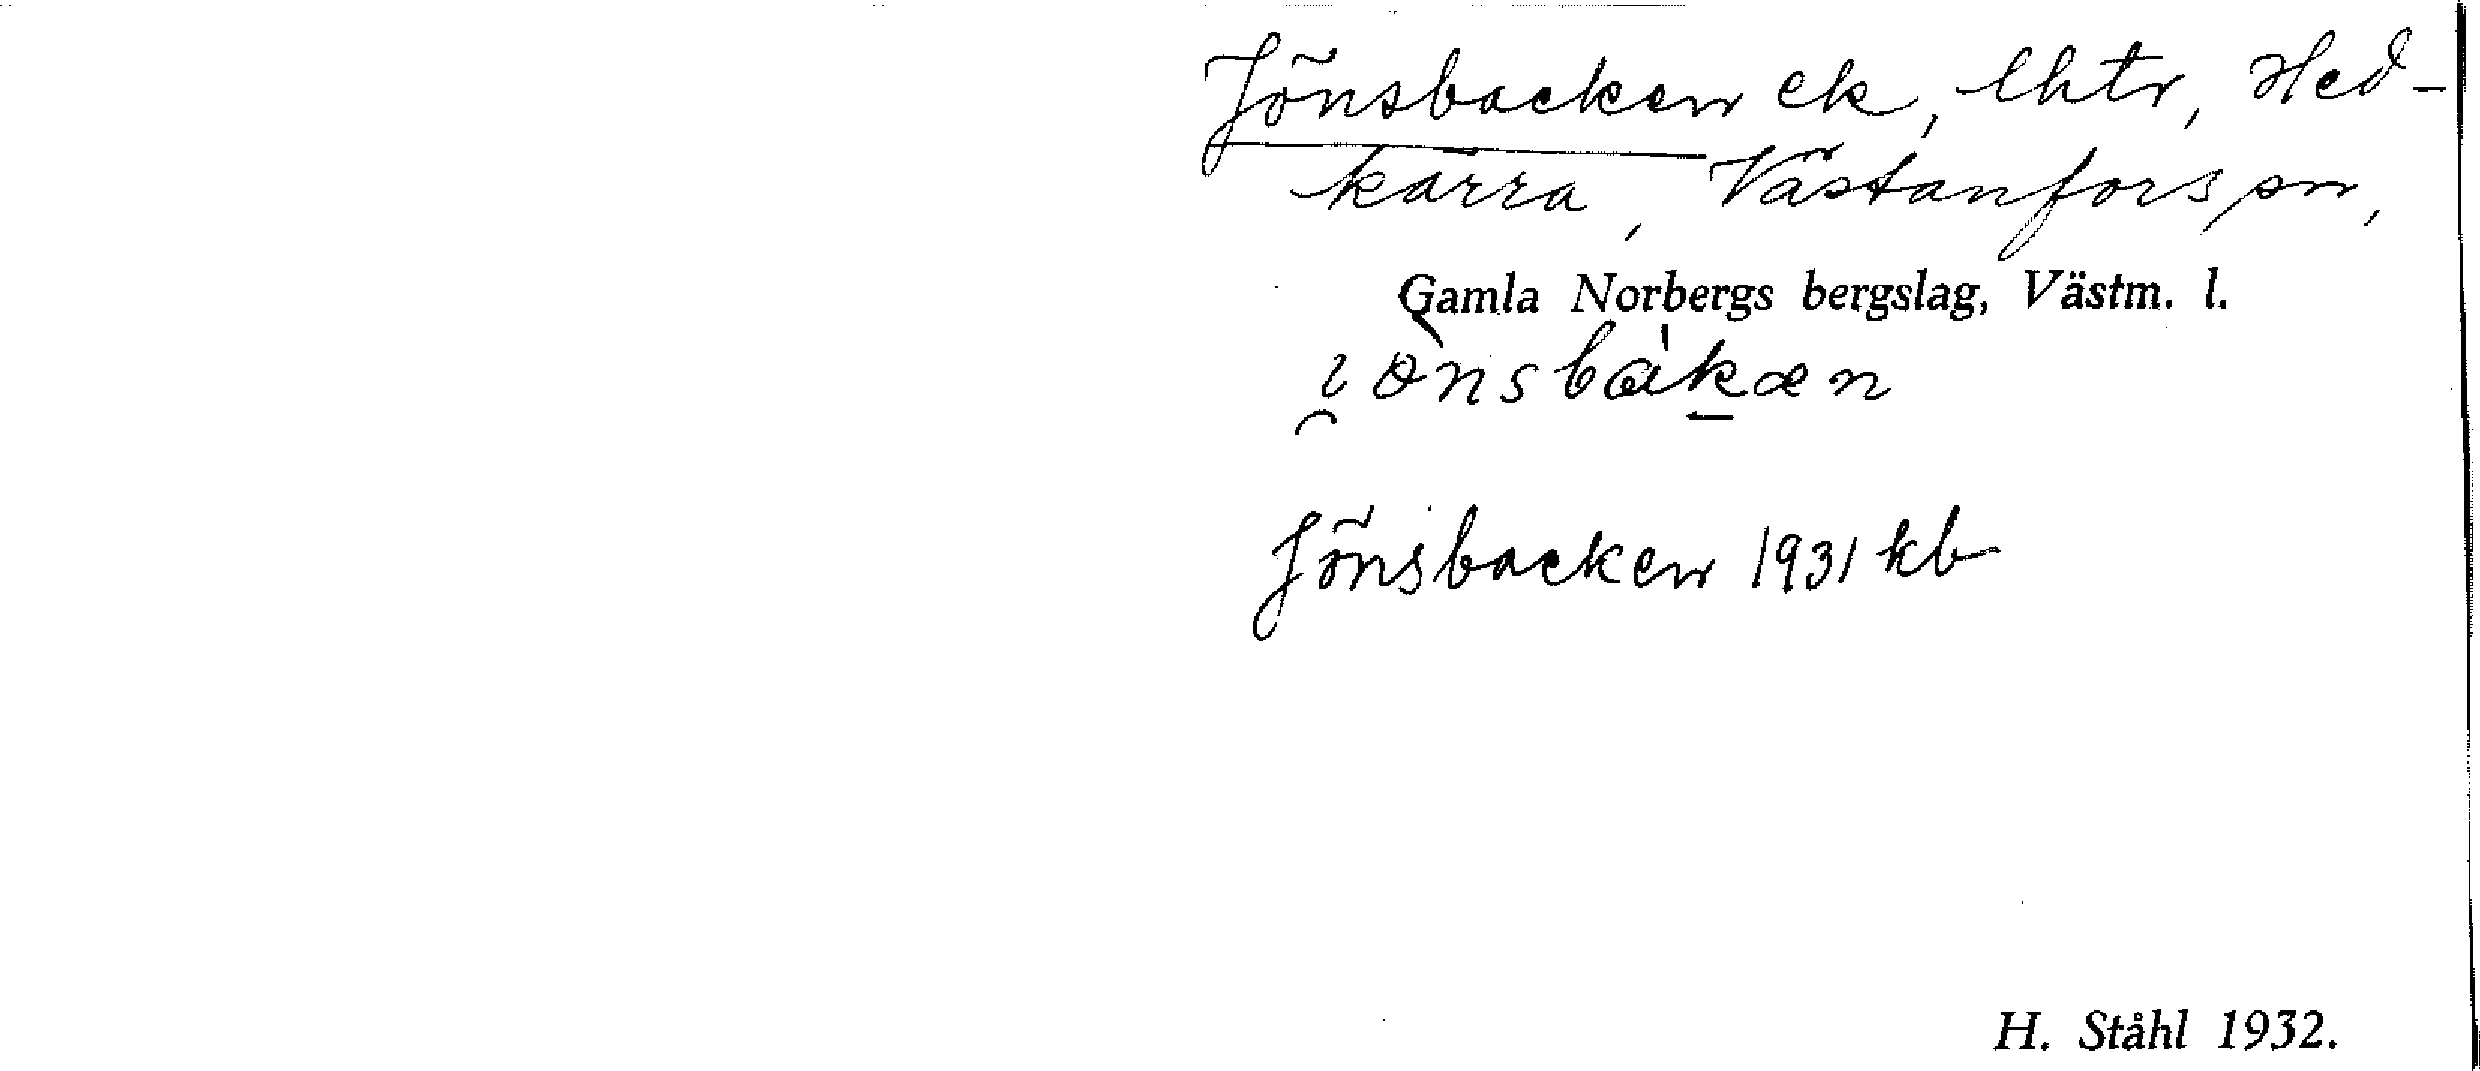 Jönsbacken ek, lhtr, Hed-
kärra, Västanfors sn,
Gamla Norbergs bergslag, Västm. l.
Jönsbacken 1931 kb
H. Ståhl 1932.